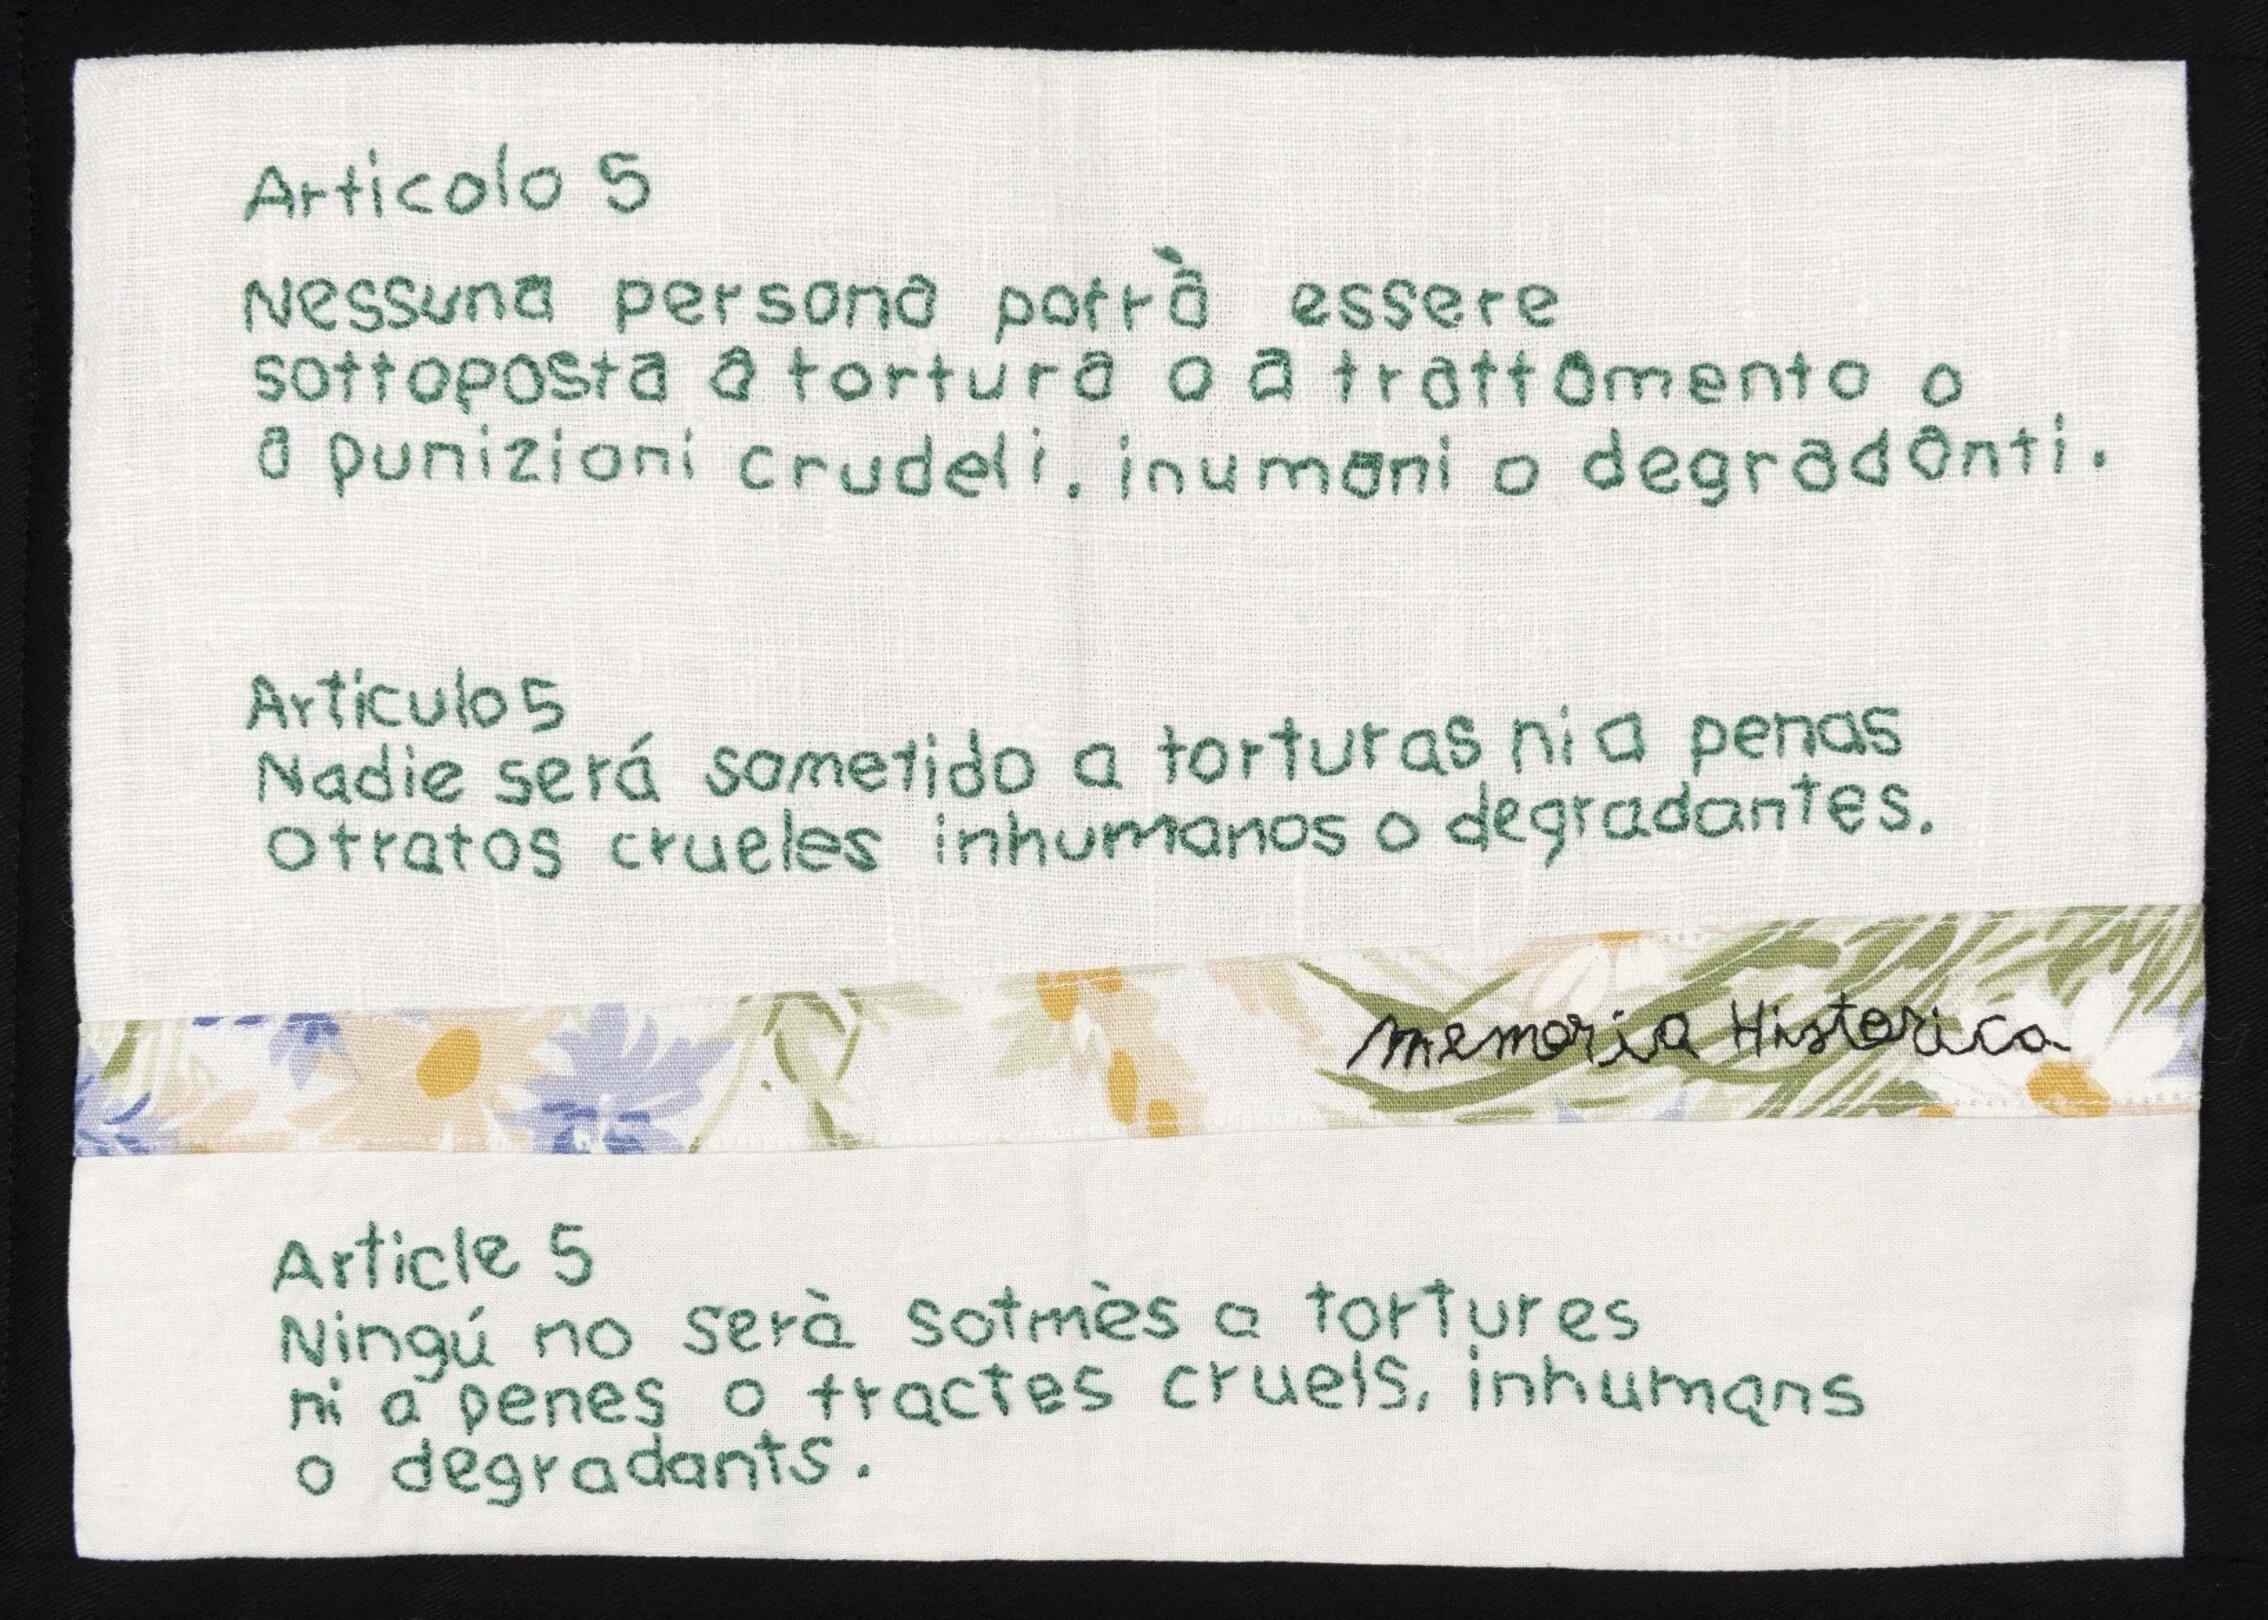 Articolo 5
Nessuna persona potrà essere
sottoposta a tortura o a trattamento o
a punizioni crudeli, inumani o degradanti.
Articulo 5
Nadie será sometido a torturas ni a penas
o tratos crueles inhumanos o degradantes.
memoria Historica
Article 5
Ningú no serà sotmès a tortures
ni a penes o tractes cruels, inhumans
o degradants.